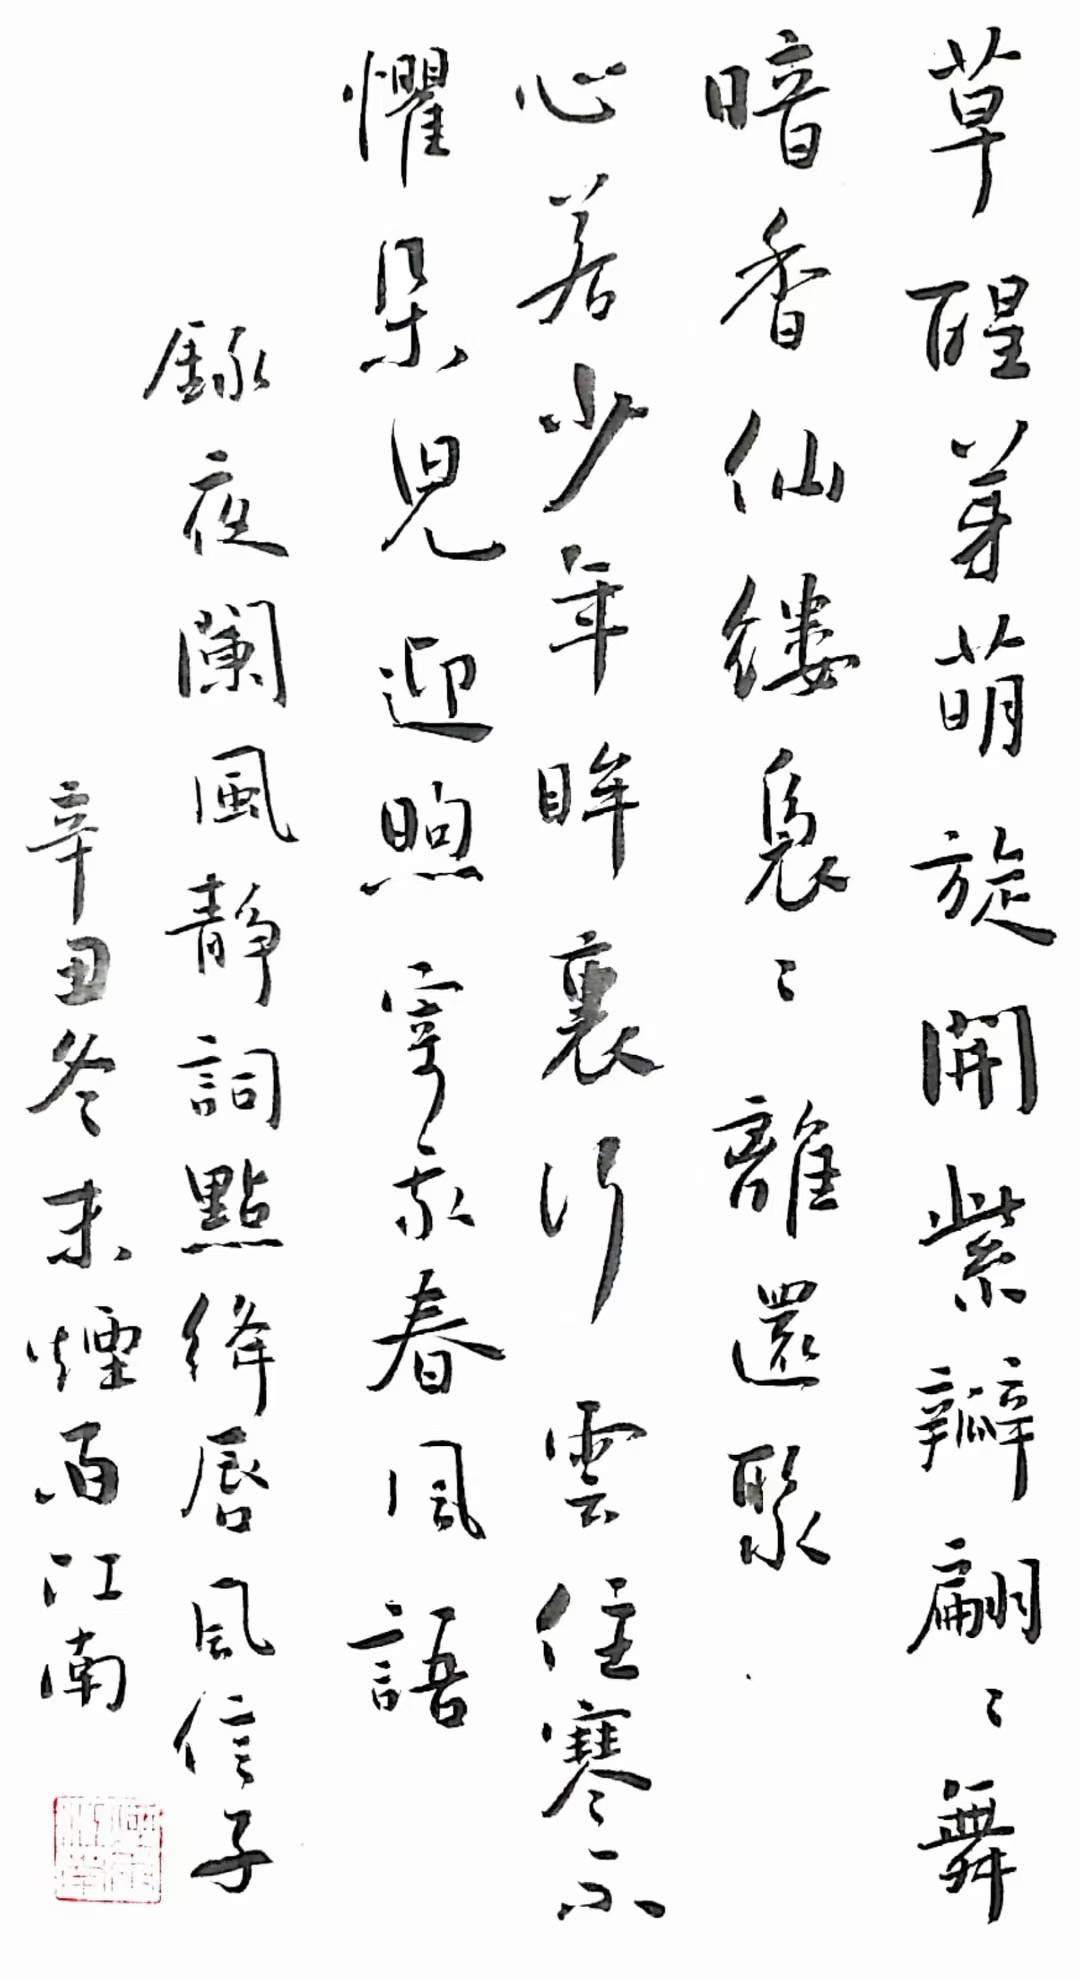 草醒芽萌旋開紫瓣翩〻舞
暗香仙縷裊〻離還聚
心若少年眸裏行雲住寒不
懼朵兒迎煦寄我春風語
錄夜闌風靜詞點絳唇風信子
辛丑冬末煙雨江南
煙雨江南